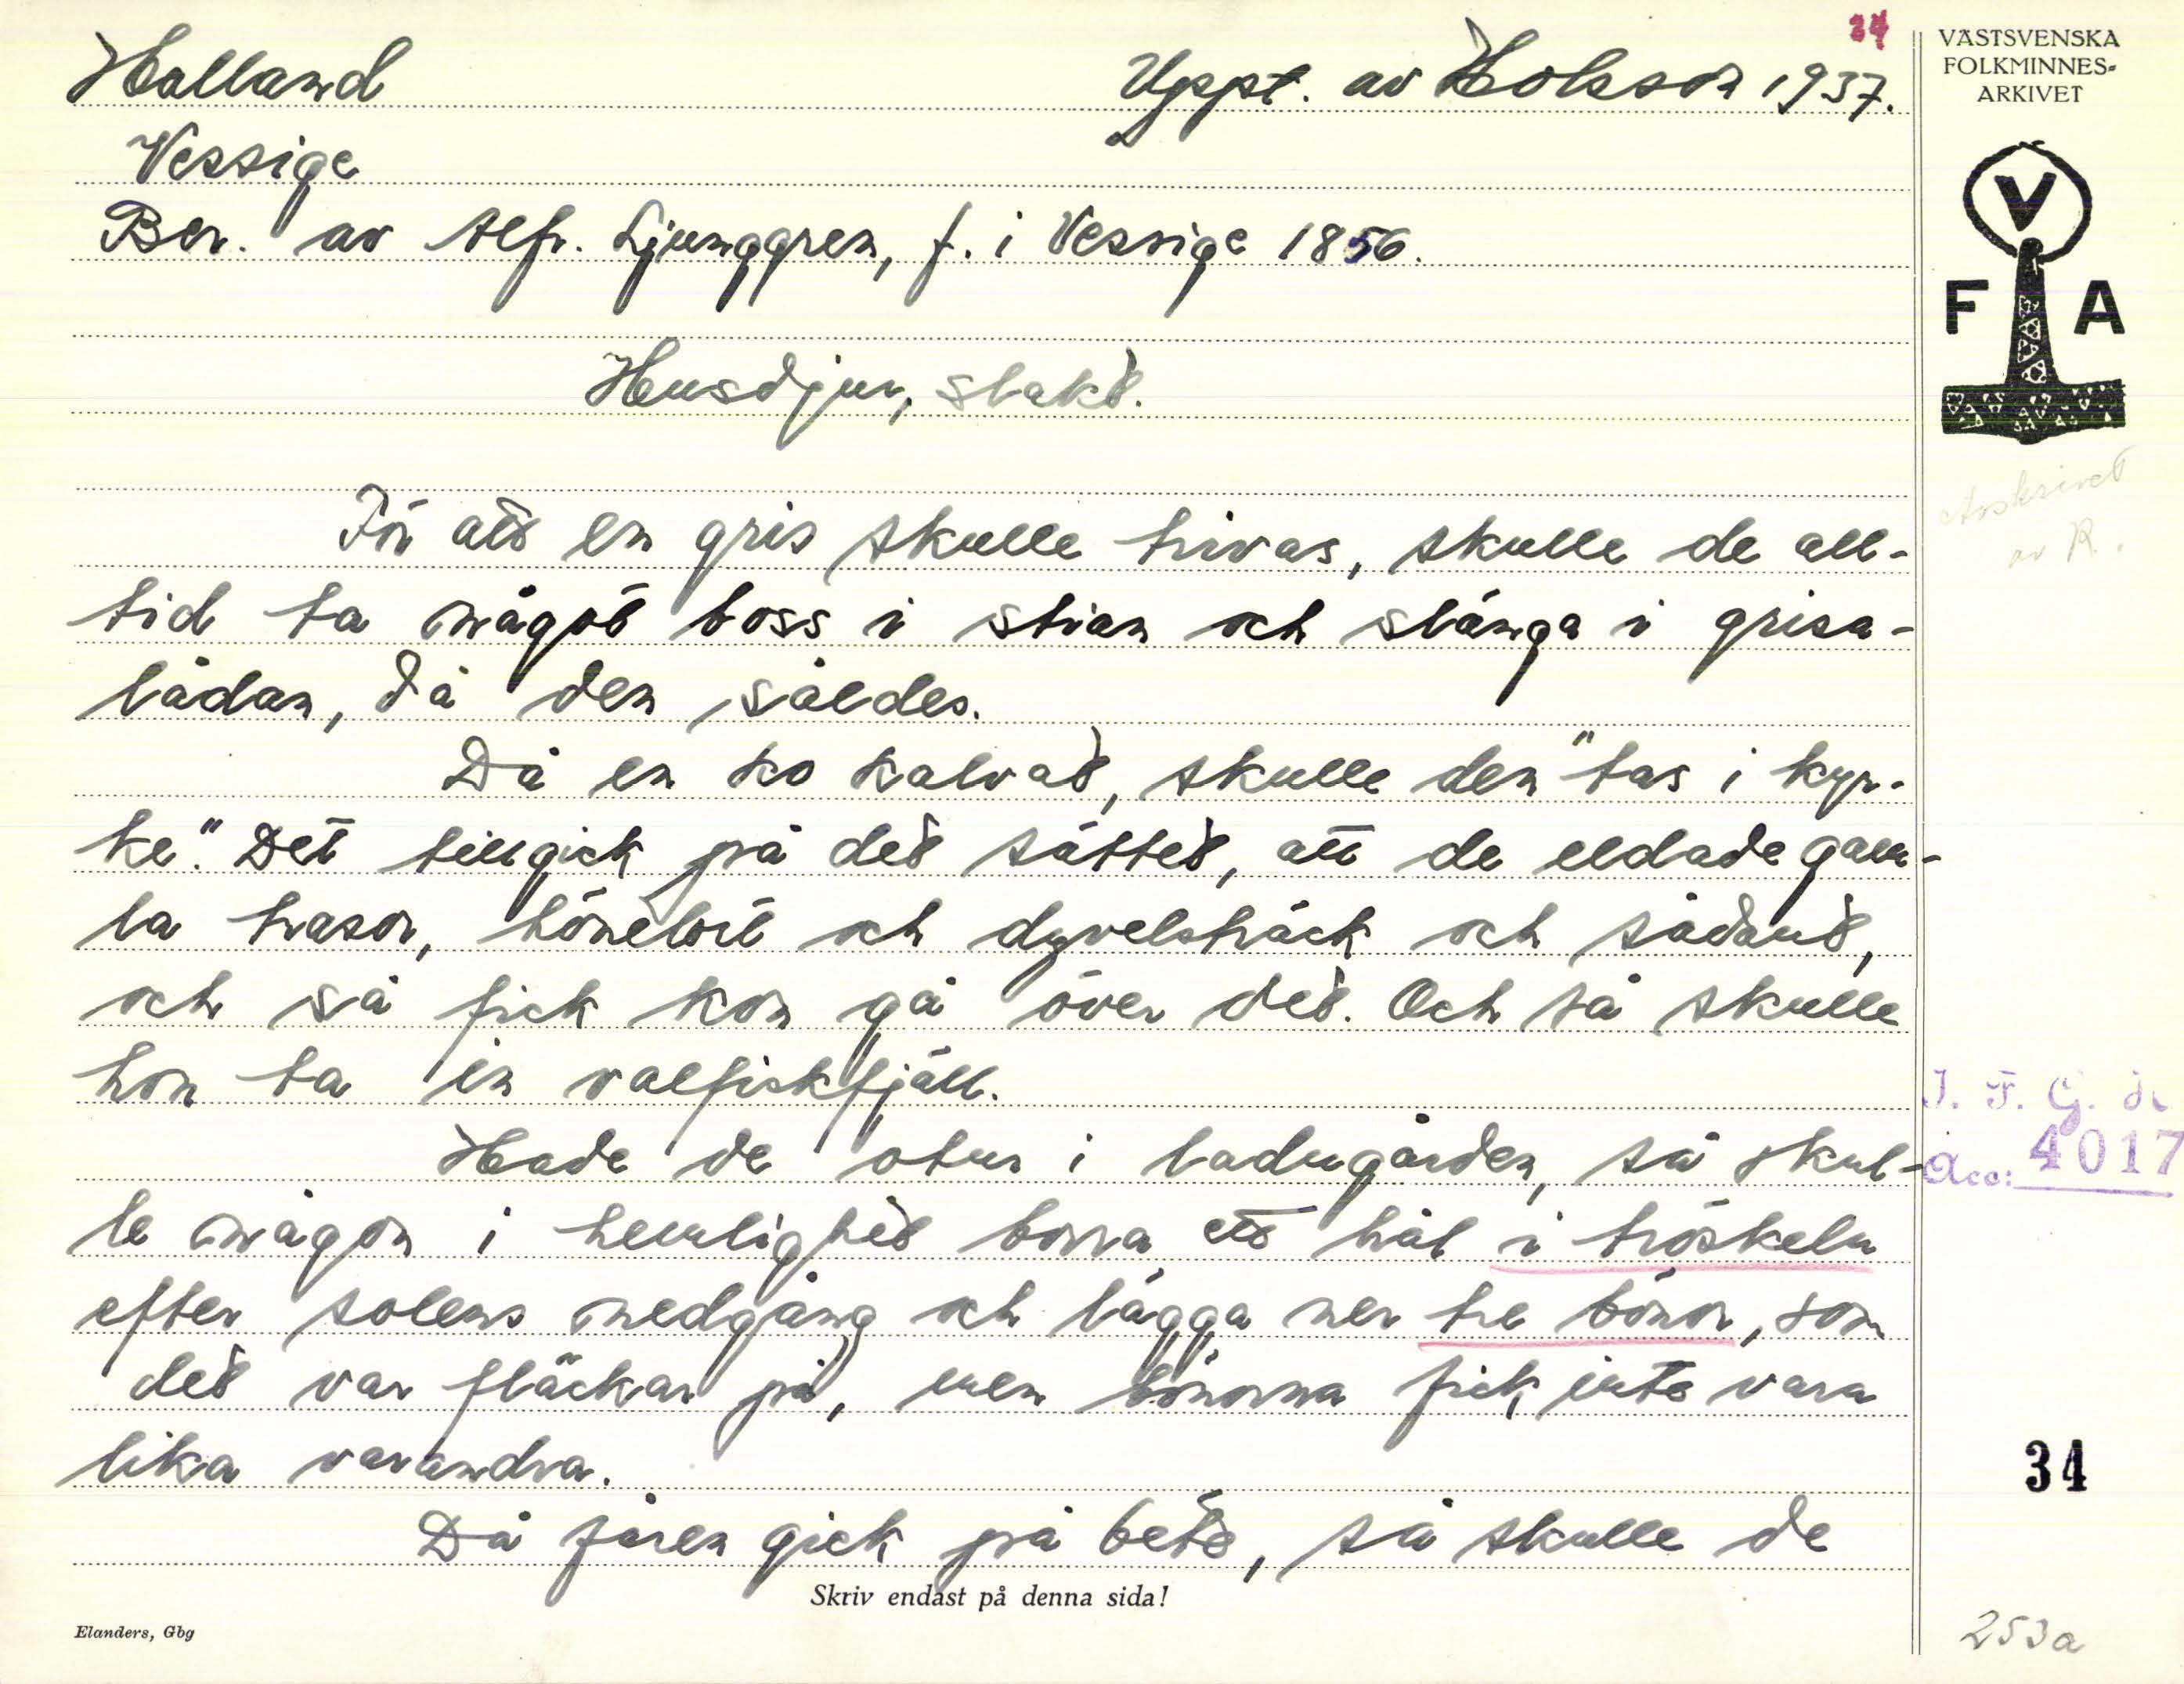 34
Halland
Uppt. av Holsson 1937.
Vessige
Ber. av Alfr. Ljunggren, f. i Vessige 1856.
Husdjur, slakt.
För att en gris skulle trivas, skulle de all-
tid ta något boss i stian och slänga i grisa-
lådan, då den såldes.
Då en ko kalvat, skulle den "tas i kyr-
ke". Det tillgick på det sättet, att de eldade gam-
la trasor, hönelort och dyvelsträck och sådant,
och så fick kon gå över det. Och så skulle
hon ta in valfiskfjäll.
Hade de otur i ladugården, så skul-
le någon i hemlighet borra ett hål i tröskeln
efter solens nedgång och lägga ner tre bönor, som
det var fläckar på, men bönorna fick inte vara
lika varandra.
Då fåren gick på bete, så skulle de
Skriv endast på denna sida!
Elanders, Gbg
VÄSTSVENSKA
FOLKMINNES-
ARKIVET
V
F A
Avskrivet
av R.
I. F. G. H.
Acc: 4017
34
253a